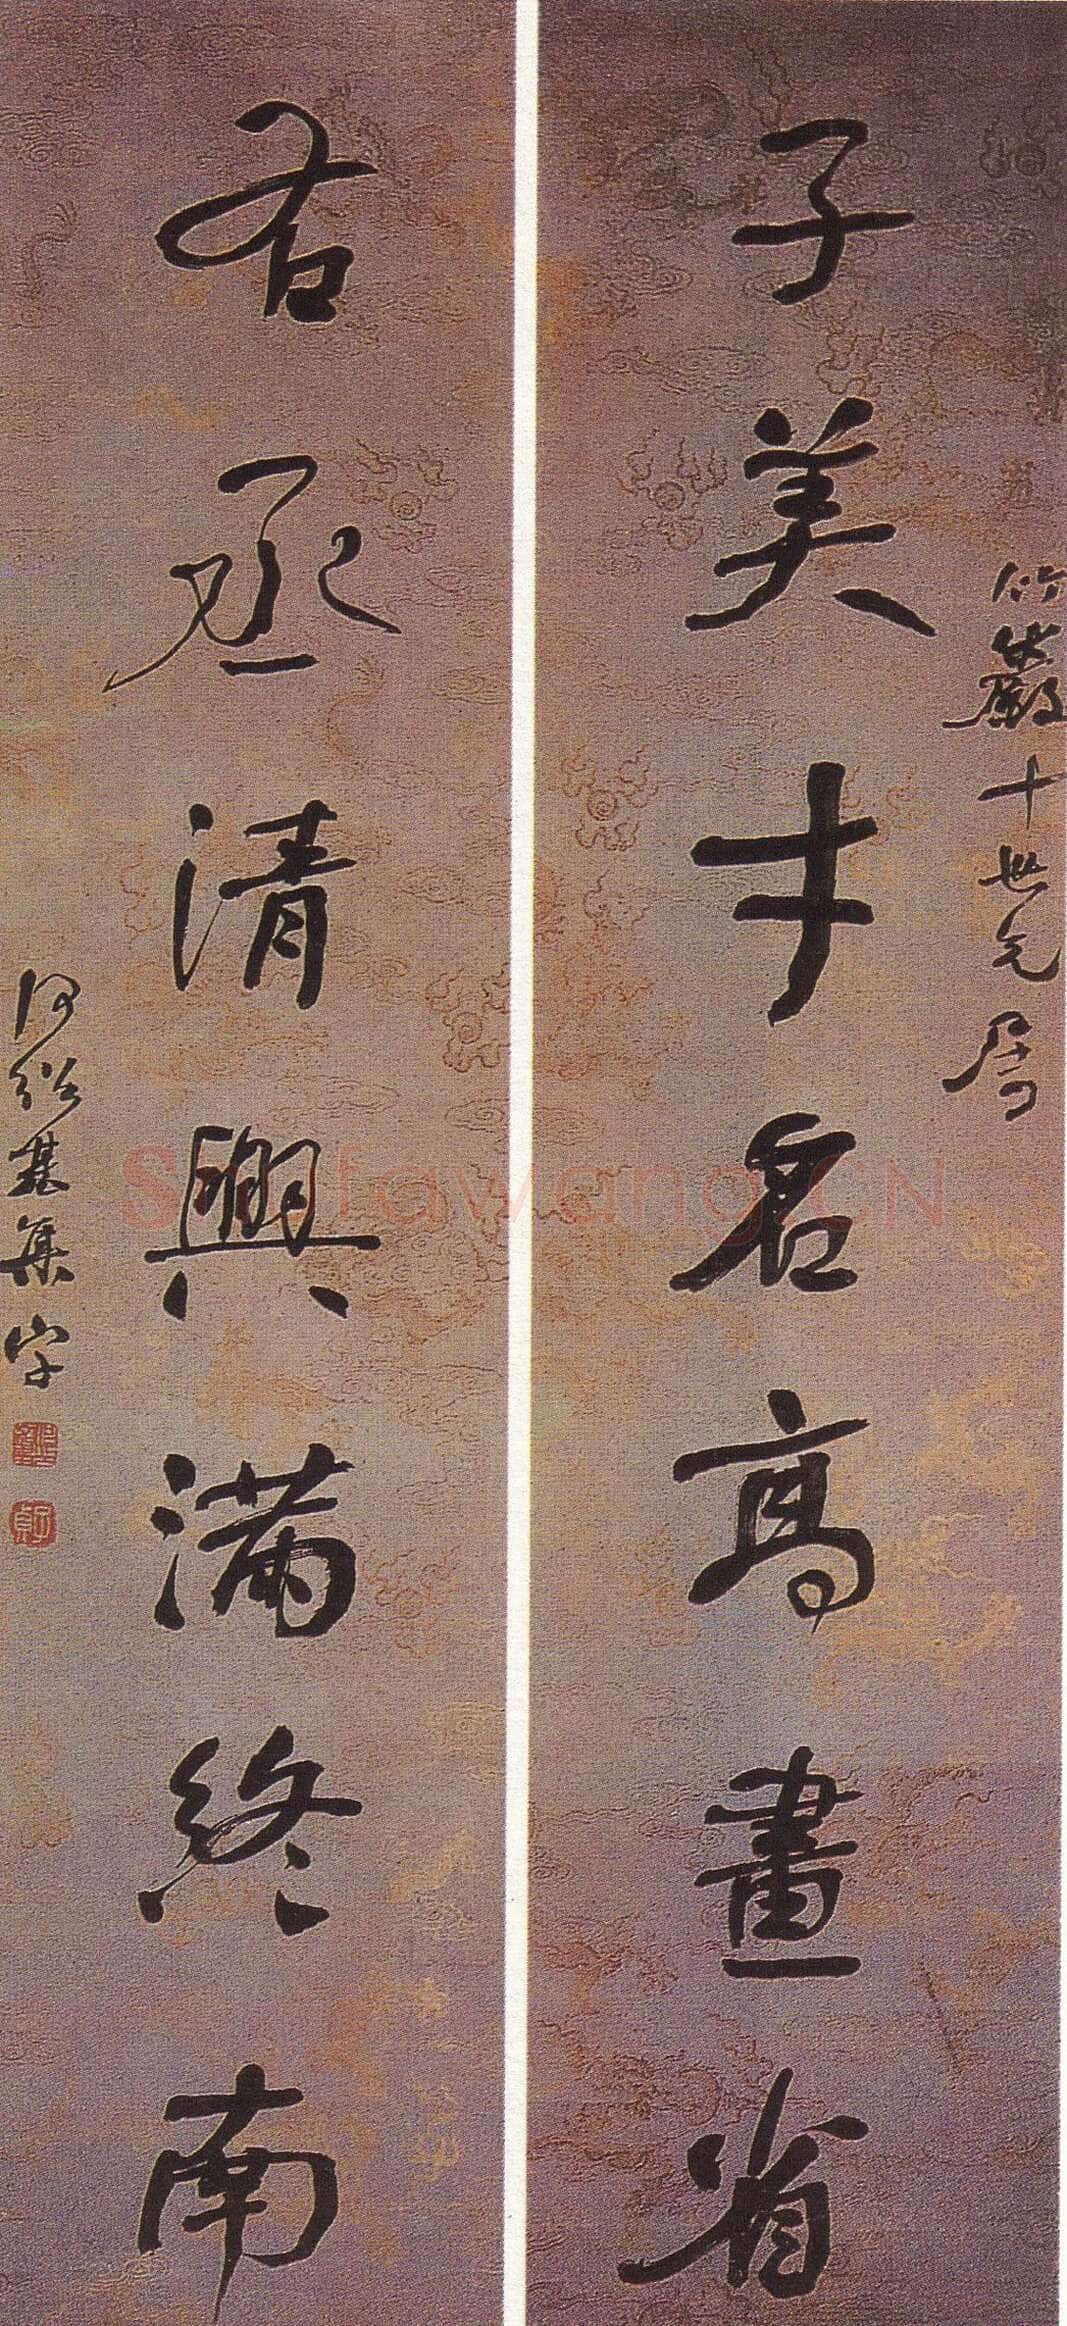 竹巖十世兄屬
子美才名高畫省
右丞清興滿終南
何紹基集字
子貞
Shufawang.CN